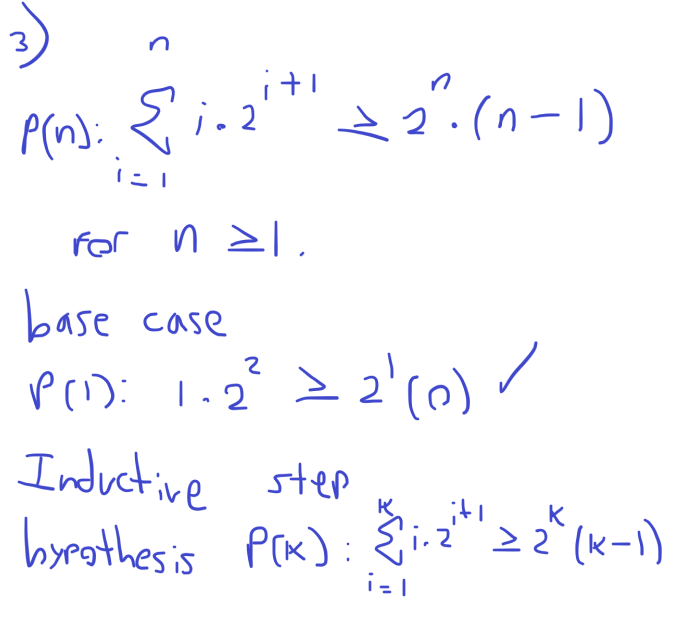 3)
P(n): ∑_{i=1}^{n} i · 2^{i+1} ≥ 2^n · (n - 1)
for n ≥ 1.
base case
P(1): 1 · 2^2 ≥ 2^1 (0) ✓
Inductive step
hypothesis P(k): ∑_{i=1}^{k} i · 2^{i+1} ≥ 2^k (k - 1)